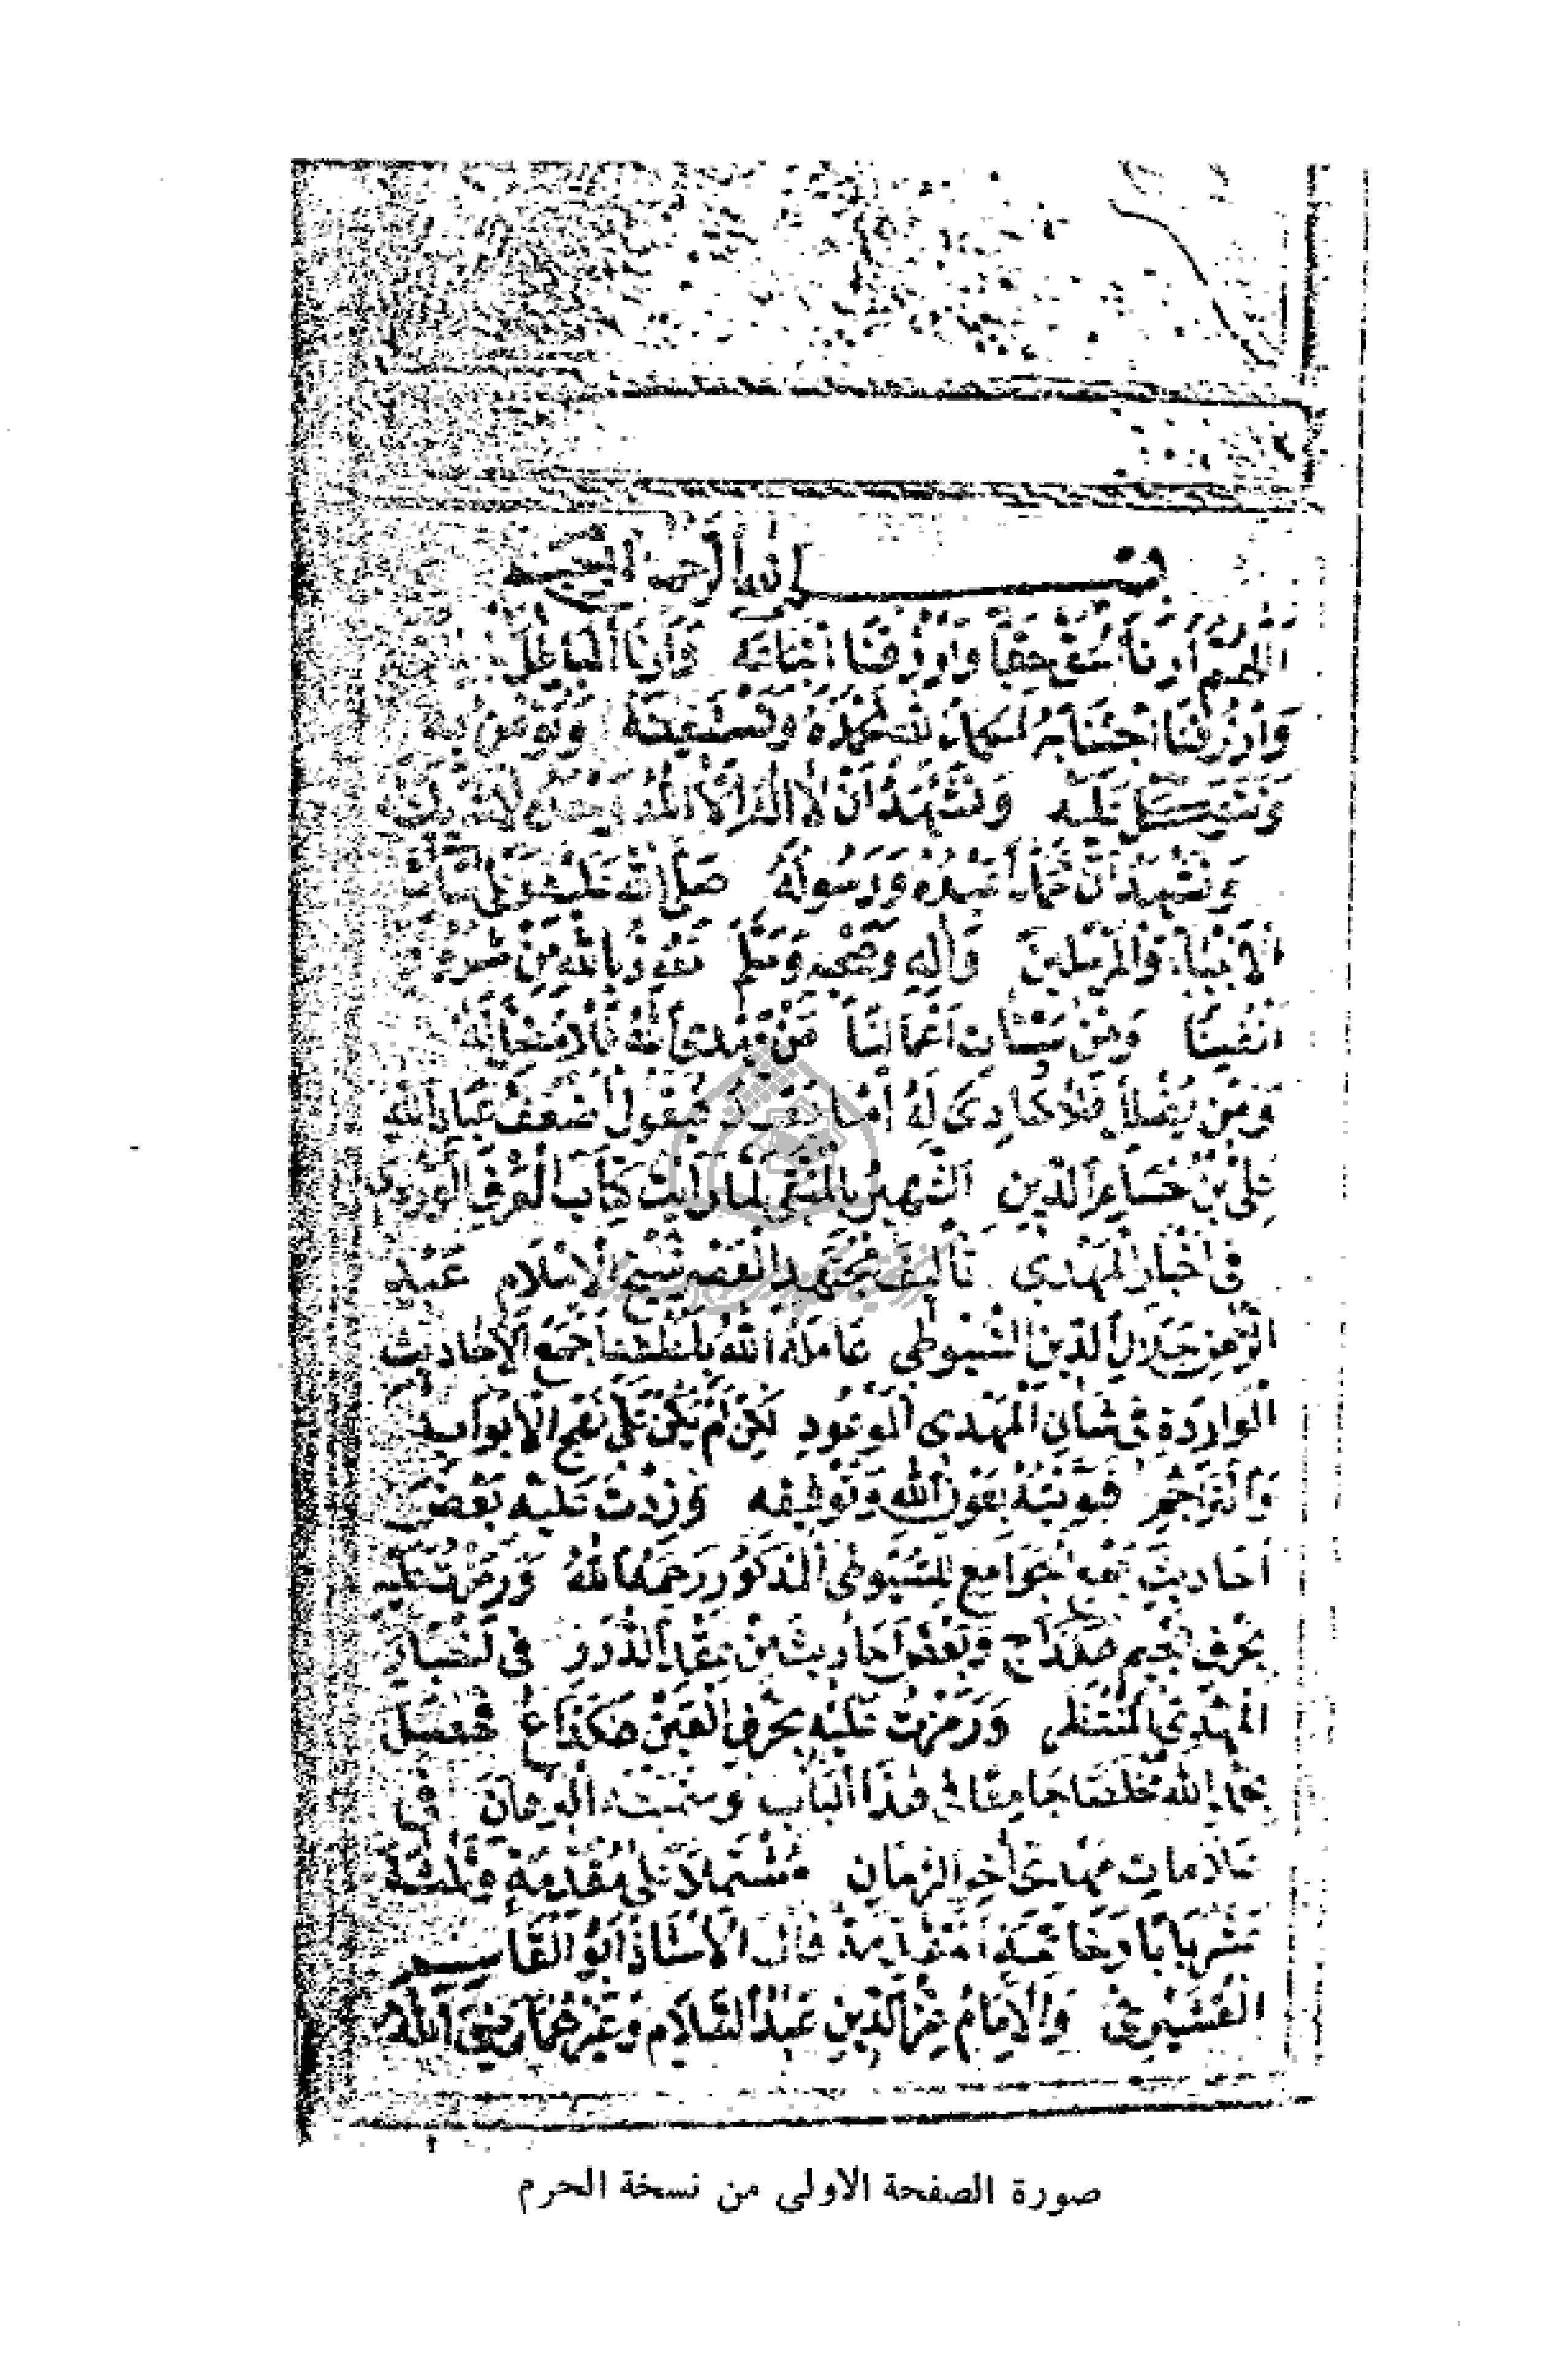 بسم الله الرحمن الرحيم
اللهم أرنا الحق حقا وارزقنا اتباعه وأرنا الباطل
وارزقنا اجتنابه الحمد لله نحمده ونستعينه ونؤمن به
ونتوكل عليه ونشهد أن لا اله الا الله وحده لا شريك له
ونشهد أن محمدا عبده ورسوله صلى الله عليه وعلى
الأنبياء والمرسلين وآله وصحبه وسلم نعوذ بالله من شرور
أنفسنا ومن سيئات أعمالنا من يهدى الله فلا مضل له
ومن يضلل فلا هادى له أما بعد فيقول أضعف عباد الله
على بن حسام الدين الشهير بالمتقى لما رأيت كتاب العرف الوردى
فى أخبار المهدى تأليف مجتهد العصر شيخ الإسلام عبد
الرحمن جلال الدين السيوطى عامله الله بلطفه جمع الأحاديث
الواردة فى شان المهدى الموعود لكن لم يكن على نهج الأبواب
والتراجم فبوبته بعون الله وتوفيقه وزدت عليه بعض
أحاديث جمع الجوامع للسيوطى المذكور رحمه الله ورمزت عليه
بحرف الجيم هكذا ج وبعض أحاديث من عقد الدرر فى أخبار
المهدى المنتظر ورمزت عليه بحرف العين هكذا ع فحصل
بحمد الله جامعا فى هذا الباب وسميته البرهان فى
علامات مهدى آخر الزمان مشتملا على مقدمة وثلثة
عشر بابا وخاتمة المقدمة قال الأستاذ أبو القاسم
القشيرى والإمام عز الدين عبد السلام وغيرهما رضى الله
صورة الصفحة الاولى من نسخة الحرم